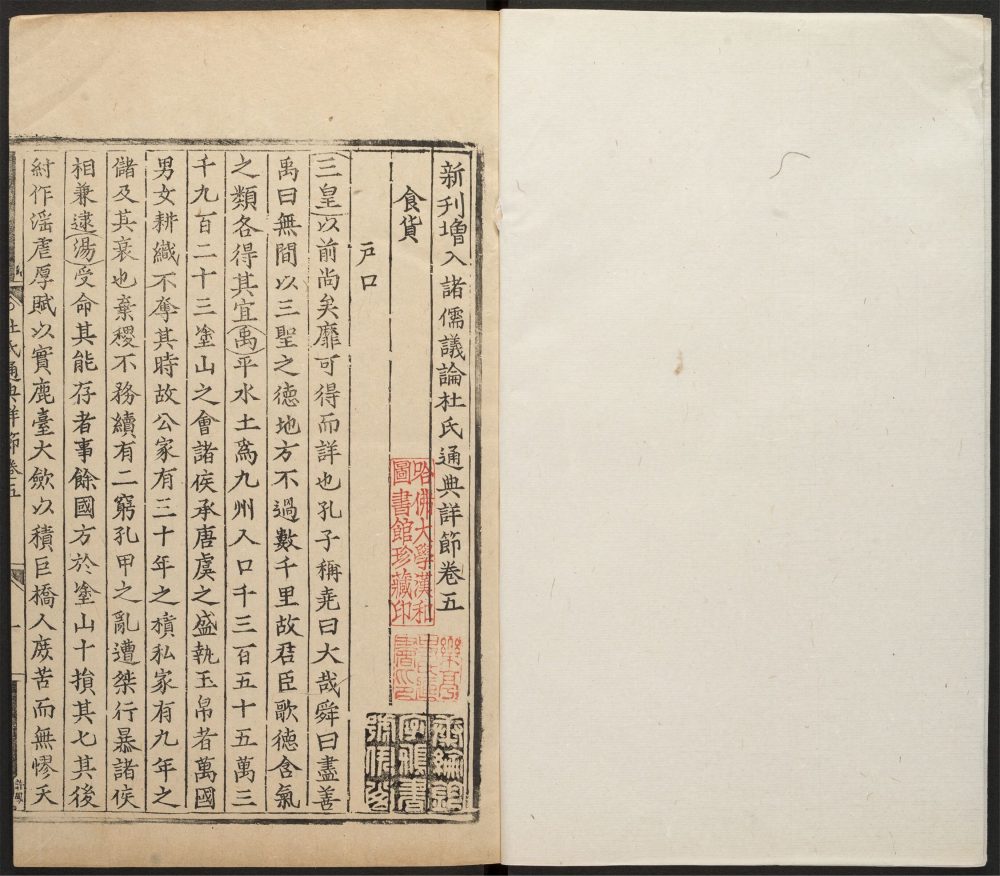 新刋增入諸儒議論杜氏通典詳節卷五
食貨
戶口
三皇以前尚矣靡可得而詳也孔子稱堯曰大哉舜曰盡善
禹曰無間以三聖之德地方不過數千里故君臣歌德含氣
之類各得其宜禹平水土爲九州人口千三百五十五萬三
千九百二十三塗山之會諸侯承唐虞之盛執玉帛者萬國
男女耕織不奪其時故公家有三十年之積私家有九年之
儲及其衰也棄稷不務續有二窮孔甲之亂遭桀行暴諸侯
相兼逮湯受命其能存者事餘國方於塗山十損其七其後
紂作淫虐厚賦以實鹿臺大斂以積巨橋人庶苦而無憀天
杜氏通典詳節卷五
一
哈佛大學漢和
圖書館珍藏印